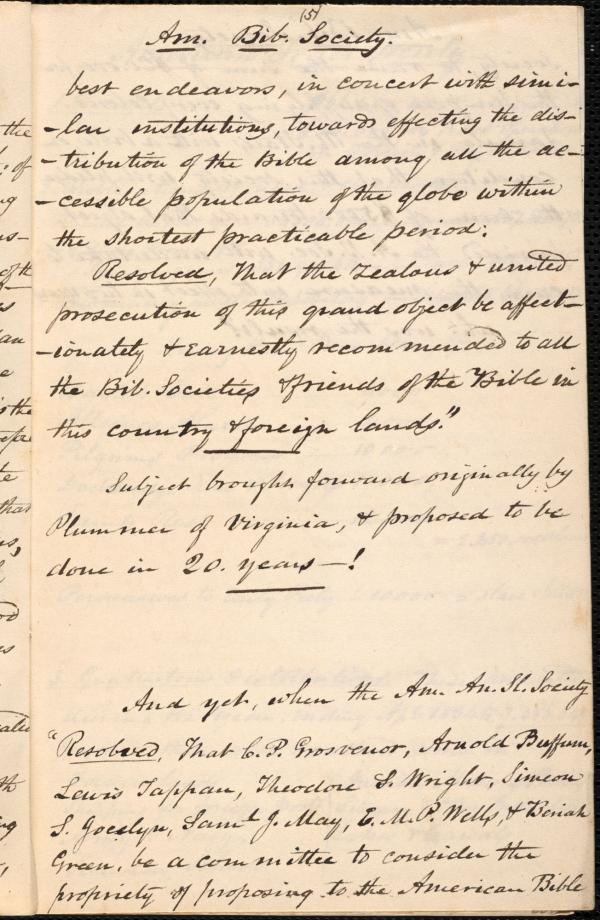 (5)
Am. Bib. Society.
best endeavors, in concert with simi-
-lar institutions, towards effecting the dis-
-tribution of the Bible among all the ac-
-cessible population of the globe within
the shortest practicable period:
Resolved, That the zealous & united
prosecution of this grand object be affect-
-ionately & earnestly recommended to all
the Bib. Societies & friends of the Bible in
this country & foreign lands."
Subject brought forward originally by
Plummer of Virginia, & proposed to be
done in 20. years—!
And yet, when the Am. An. Sl. Society
"Resolved, That C. P. Grosvenor, Arnold Buffum,
Lewis Tappan, Theodore S. Wright, Simeon
S. Jocelyn, Saml J. May, E. M. P. Wells, & Beriah
Green, be a committee to consider the
propriety of proposing to the American Bible